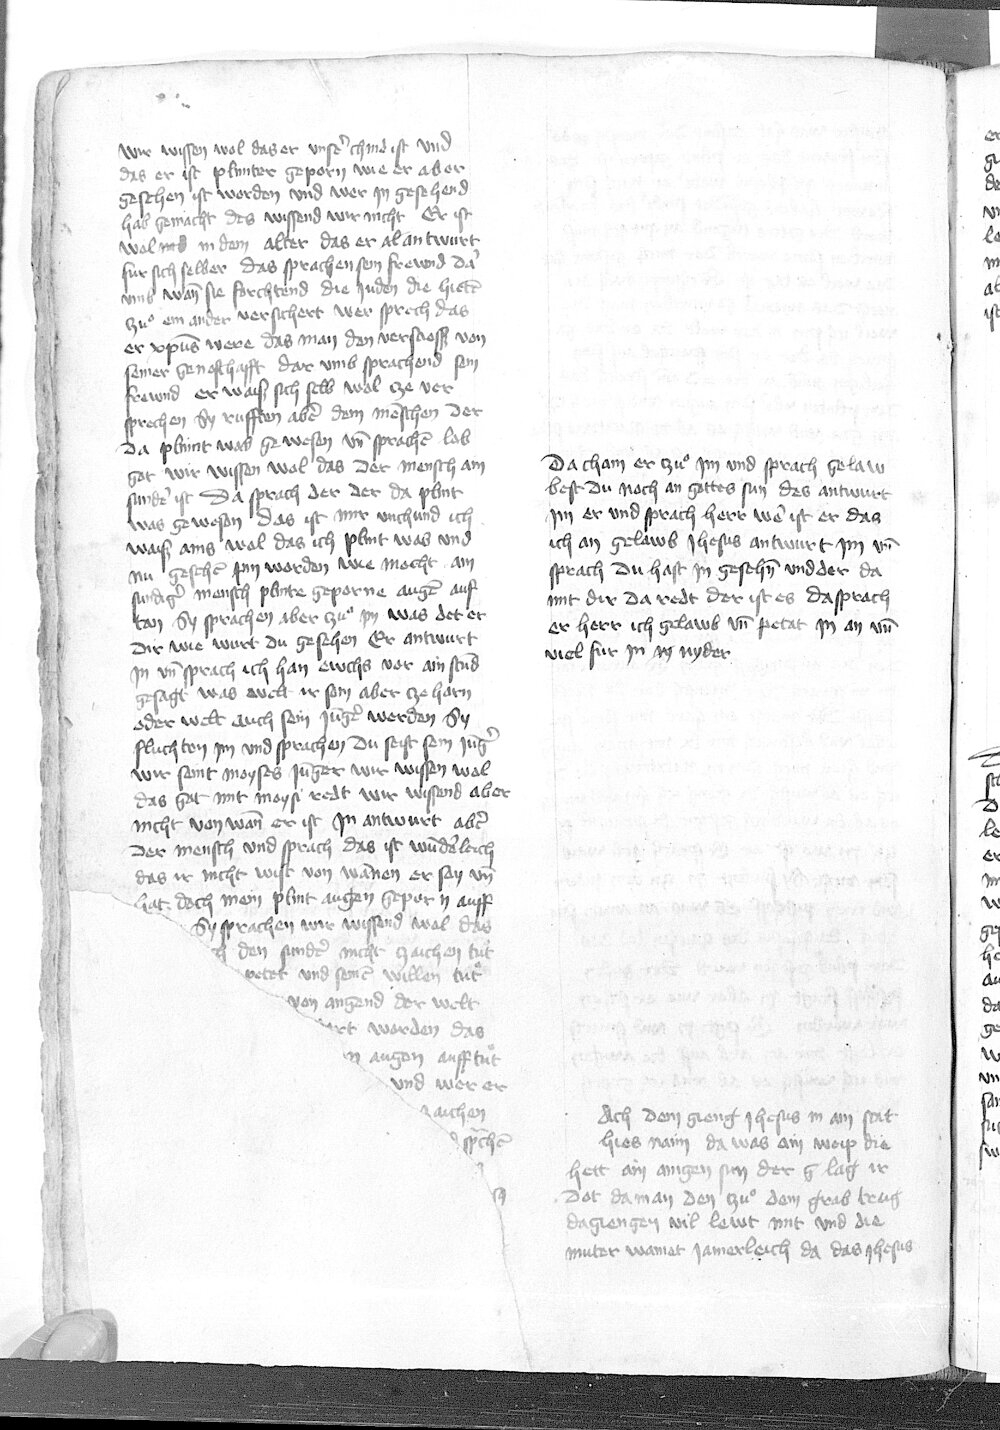 wir wissen wol das er unser chind ist und
das er ist plinter geporn wie er aber
gesehen ist worden und wer in gesehend
hab gemacht des wissend wir nicht Er ist
wol in dem alter das er al antwurt
fur sich selber das sprachen sein frewnd dar
umb wan̄ sie forchtend die Juden die hietē
czuo ein ander versichert wer sprech das
er xpūs were das man den verstoss von
seiner dar umb sprachend sein
frewnd er waiß sich selb wol cze ver
sprechen Sy rufften aber dem mēschen der
da plint was gewesen vn̄ sprachē lob
got wir wissen wol das der mensch am
sunder ist Da sprach der der da plint
was gewesen das ist mir unchund ich
waiß ains wol das ich plint was und
nu gesehē pin worden wie mocht ain
sundiger mensch plinte geporne augen auf
tan Sy sprachen aber czuo im was det er
dir wie wurt du gesehen Er antwurt
in vn̄ sprach ich han ewchs vor ain stūd
gesagt was welt ir sein aber cze horn
oder welt auch sein Junger werden Sy
fluchten im und sprachen Du seist sein Junger
wir seint moyses Junger wir wissen wol
das got mit moysi redt wir wissend aber
nicht von wan̄ er ist In antwurt aber
der mensch und sprach das ist wunderleich
das ir nicht wist von wānen er sey vn̄
hat doch mein plint augen geporn auff
Sy sprachen wir wissend wol das
den sunder nicht zaichen tut
petet und seinē willen tut
von angend der welt
worden das
augen auff tut
und wer er
zaichen
sprachē
Da cham er czuo im und sprach gelaw
best du noch an gottes sun des antwurt
im er und sprach herr wer ist er das
ich an gelawb Jhesus antwurt im vn̄
sprach Du hast in gesehn̄ und der da
mit dir da redt der ist es da sprach
er herr ich gelawb vn̄ petat in an vn̄
viel fur in nyder
Ach dem gieng Jhesus in ain stat
hies naim da was ain weip die
hett ain ainigen sun der lag ir
dot da man den czuo dem grab trug
da giengen vil lewt mit und die
muter wainet Jamerleich da das Jhesus